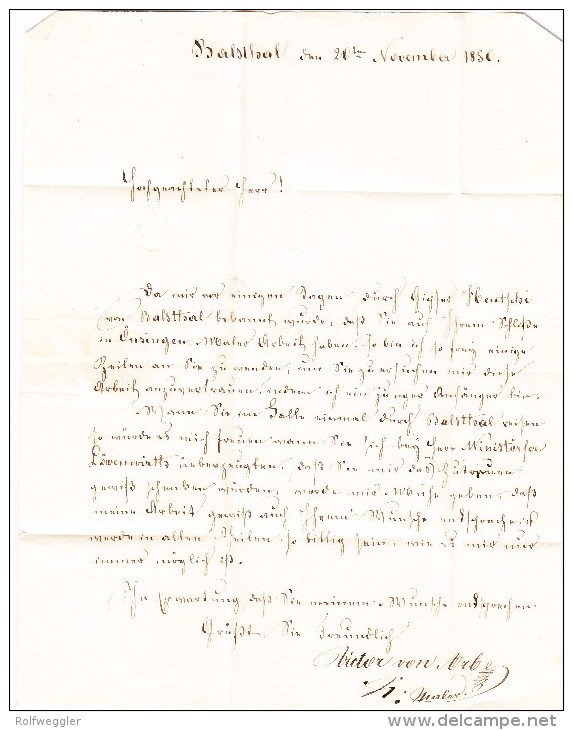 Balsthal den 21ten November 1856.
Hochgeachteter Herr!
Da mir vor einigen Tagen durch Gipser Heutschi
von Balsthal bekannt wurde, daß Sie auf Ihrem Schloße
in Önsingen Maler Arbeit haben. so bin ich so freÿ einige
Zeilen an Sie zu wenden, um Sie zu ersuchen mir diese
Arbeit anzuvertrauen, indem ich ein junger Anfänger bin.
Wann Sie im Falle einmal durch Balsthal reisen
so würde es mich freuen wann Sie sich beÿ Herr
Löwenwirth ueberzeugten, daß Sie mir das Zutrauen
gewiß schenken würden, werde mir Mühe geben, daß
meine Arbeit gewiß auch Ihrem Wunsche entspreche, ich
werde in allen Theilen so billig sein, wie es mir nur
immer möglich ist.
In Erwartung daß Sie meinem Wunsche entsprechen
Grüßt Sie Freundlich
Victor von Arb
Maler
Rolfweggler
www.delcampe.net